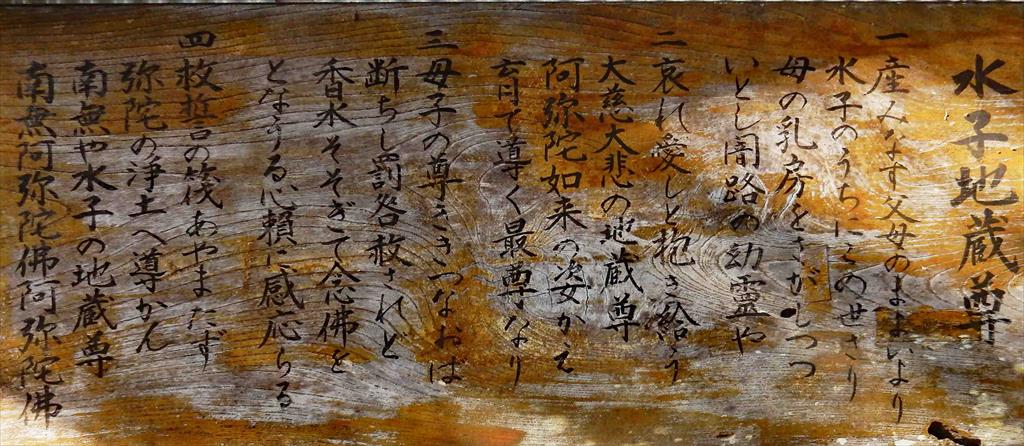 水子地蔵尊
一 産みなす父母のままいより
水子のうちにこのせさり
母の乳房をさがしつつ
いとし闇路の幼霊や
二 哀れ愛しと抱き給う
大慈大悲の地蔵尊
阿弥陀如来の姿かえ
玄月で導く最尊なり
三 母子の尊ききつなおは
断ちし罰咎赦されと
香水そそぎて念佛を
となうる心頼に感応らる
四 救誓の筏あやまたず
弥陀の浄土へ導かん
南無や水子の地蔵尊
南無阿弥陀佛阿弥陀佛